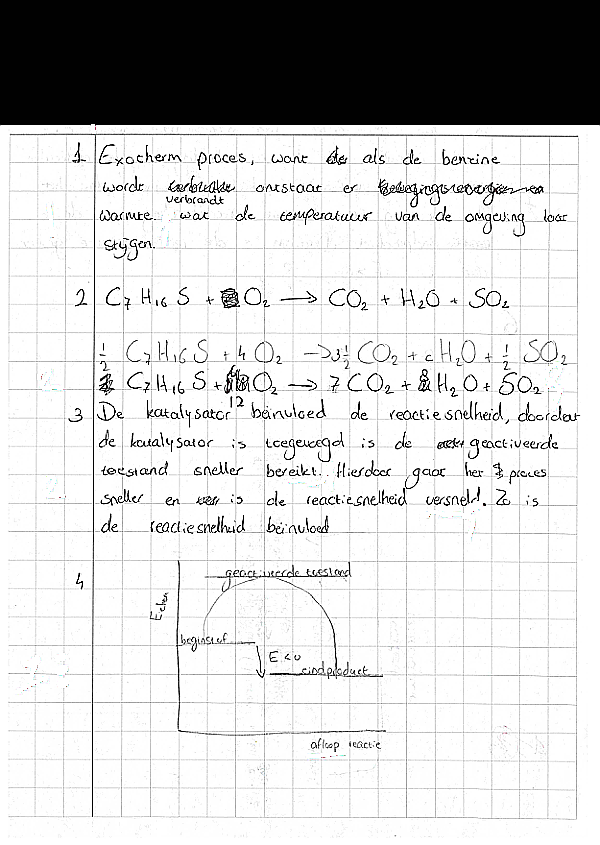 1 Exotherm proces, want als de benzine
wordt verbrandt ontstaat er
warmte wat de temperatuur van de omgeving laat
stijgen.
2 C7 H16 S + O2 → CO2 + H2O + SO2
½ C7H16S + 4 O2 → 3½ CO2 + c H2O + ½ SO2
C7H16S + 12 O2 → 7 CO2 + 8 H2O + SO2
3 De katalysator beinvloed de reactiesnelheid, doordat
de katalysator is toegevoegd is de geactiveerde
toestand sneller bereikt. Hierdoor gaat het proces
sneller en is de reactiesnelheid versneld. Zo is
de reactiesnelheid beinvloed
4
geactiveerde toestand
beginstof
E < 0
eindproduct
afloop reactie